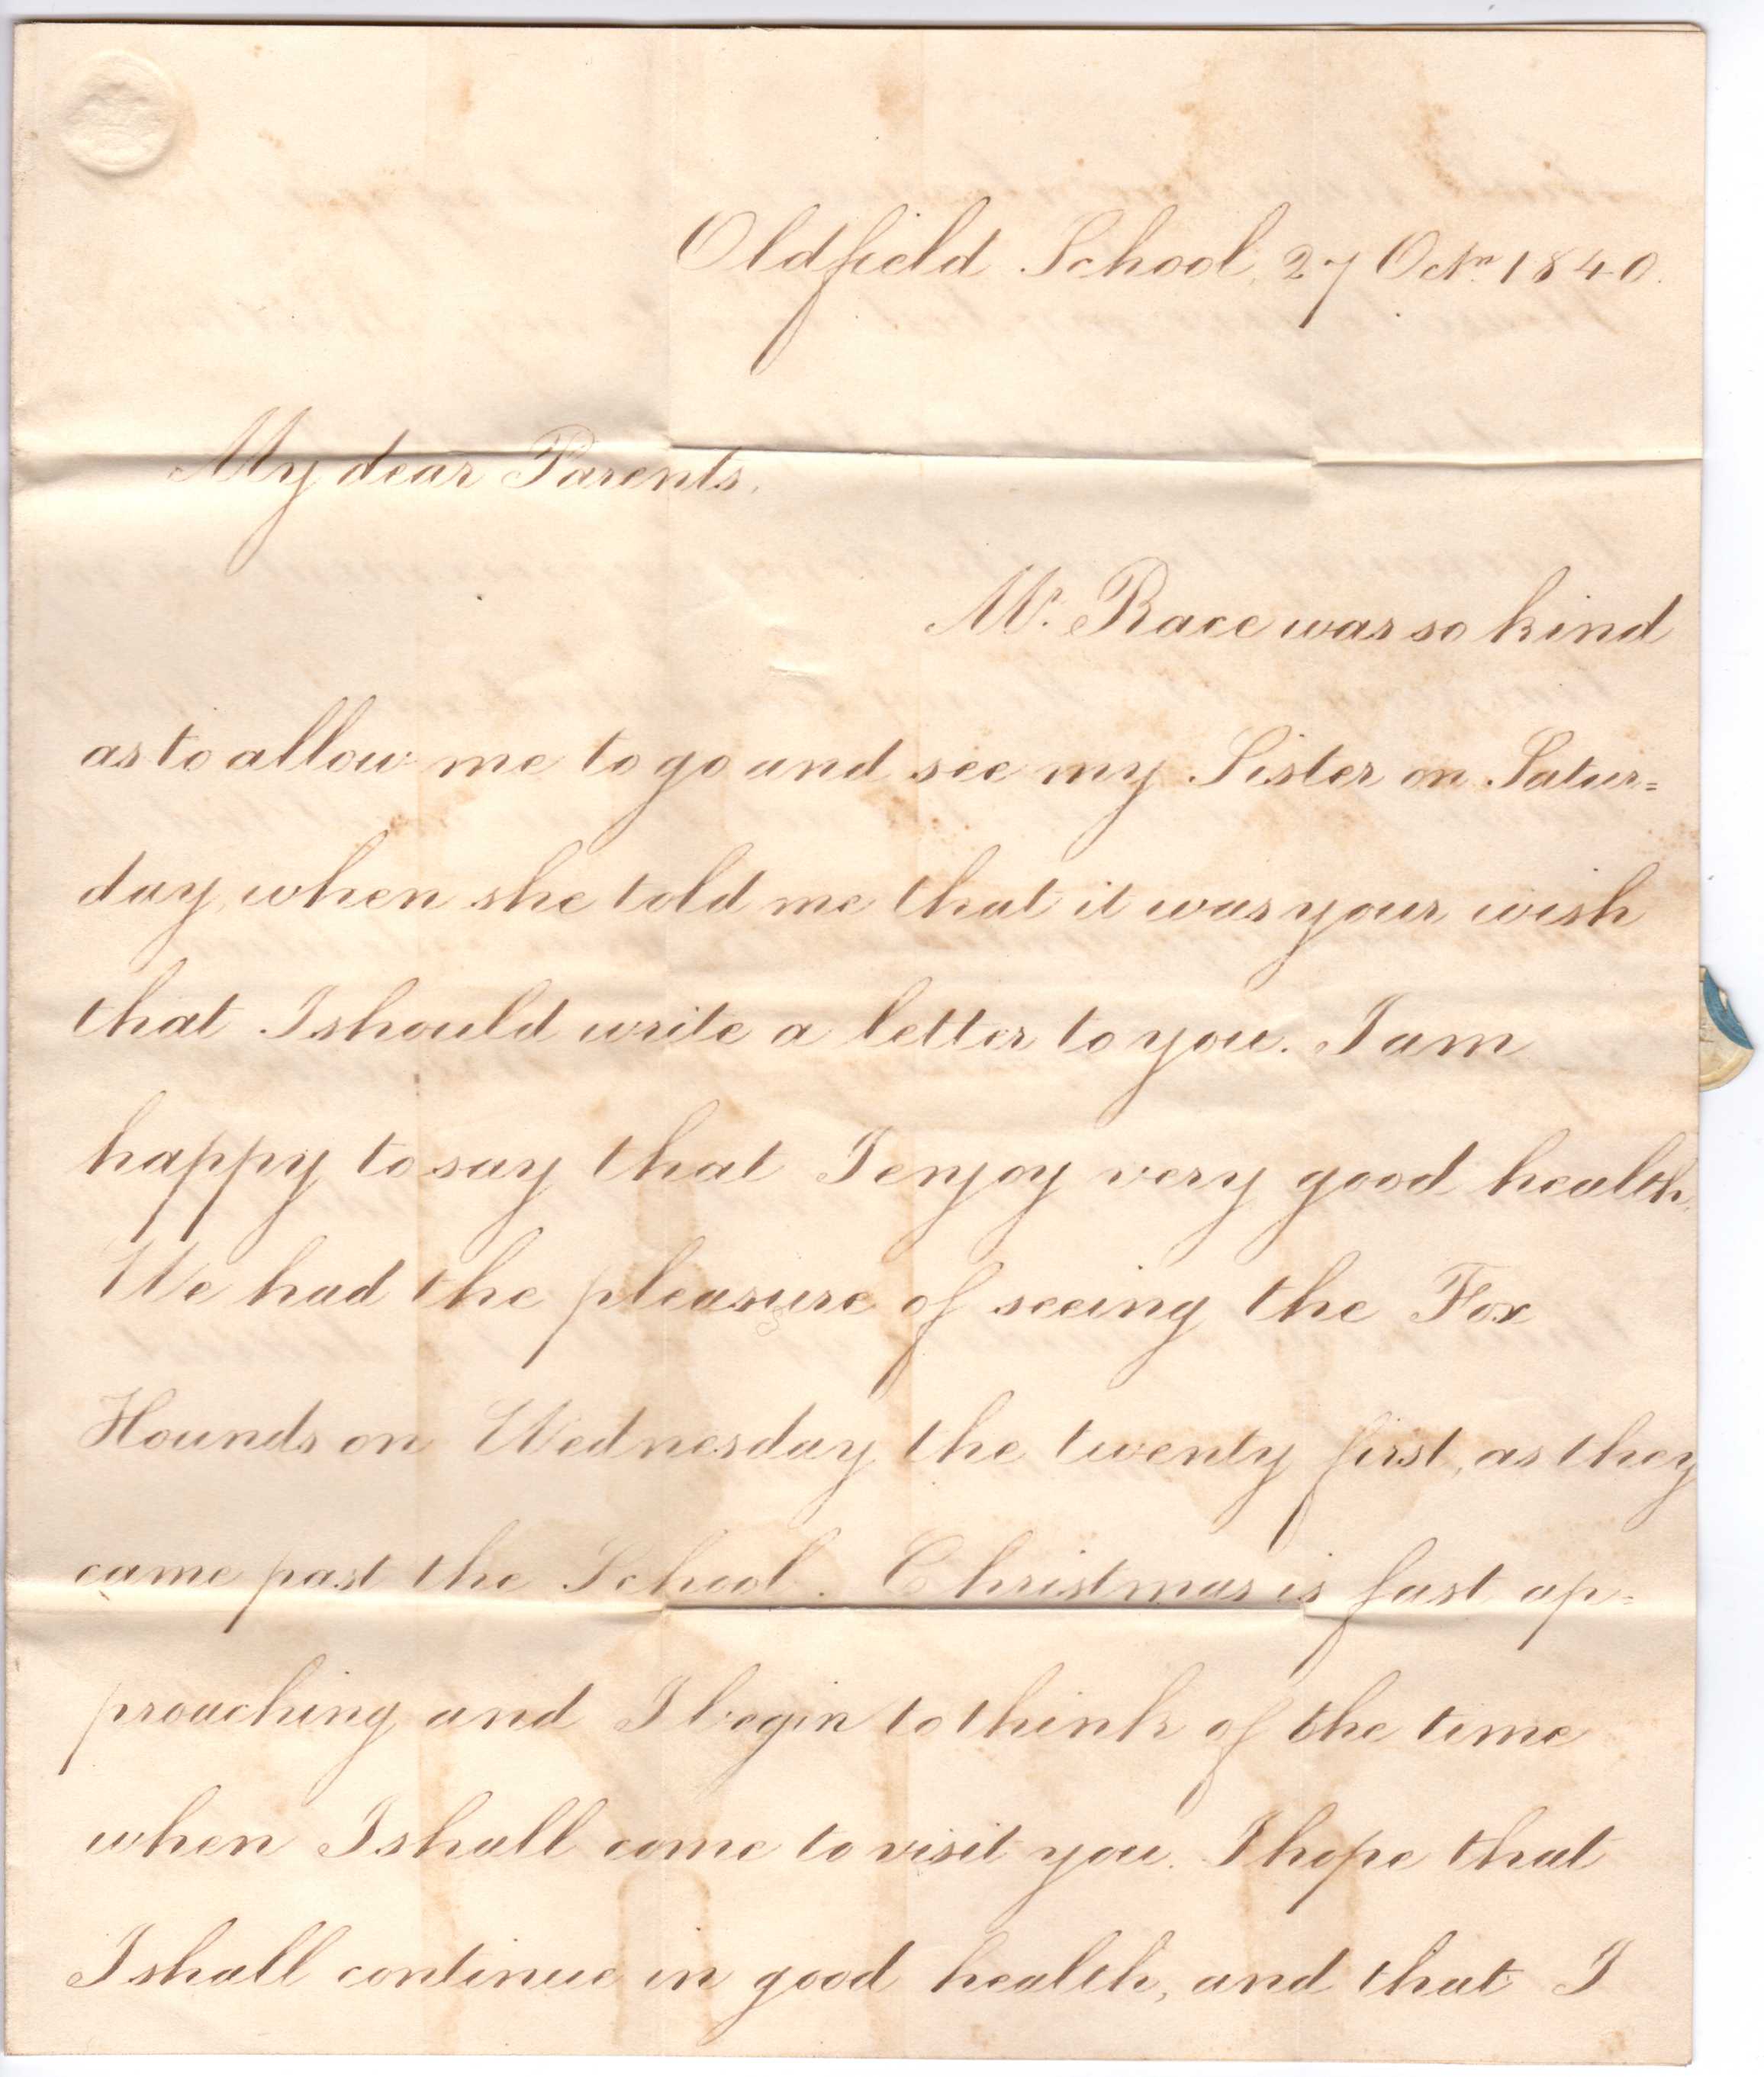 Oldfield School, 27 Octr. 1840.
My dear Parents,
Mr. Race was so kind
as to allow me to go and see my Sister on Satur=
day, when she told me that it was your wish
that I should write a letter to you. I am
happy to say that I enjoy very good health.
We had the pleasure of seeing the Fox
Hounds on Wednesday the twenty first, as they
came past the School. Christmas is fast ap=
proaching and I begin to think of the time
when I shall come to visit you. I hope that
I shall continue in good health, and that I